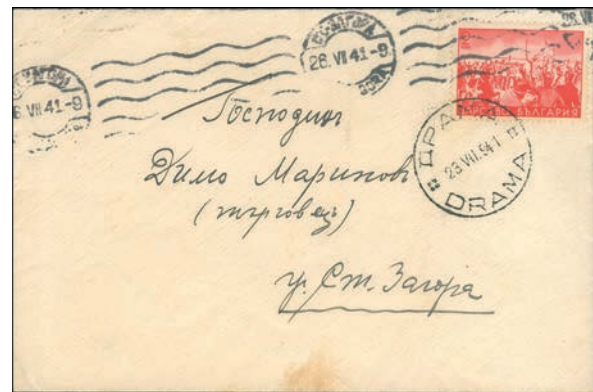 26.VII 41-9
6.VII 41-9
БЪЛГАРИЯ
ДРАМА
23.VII.941
DRAMA
Господинъ
Мариновъ
(търговец)
гр. Ст. Загора